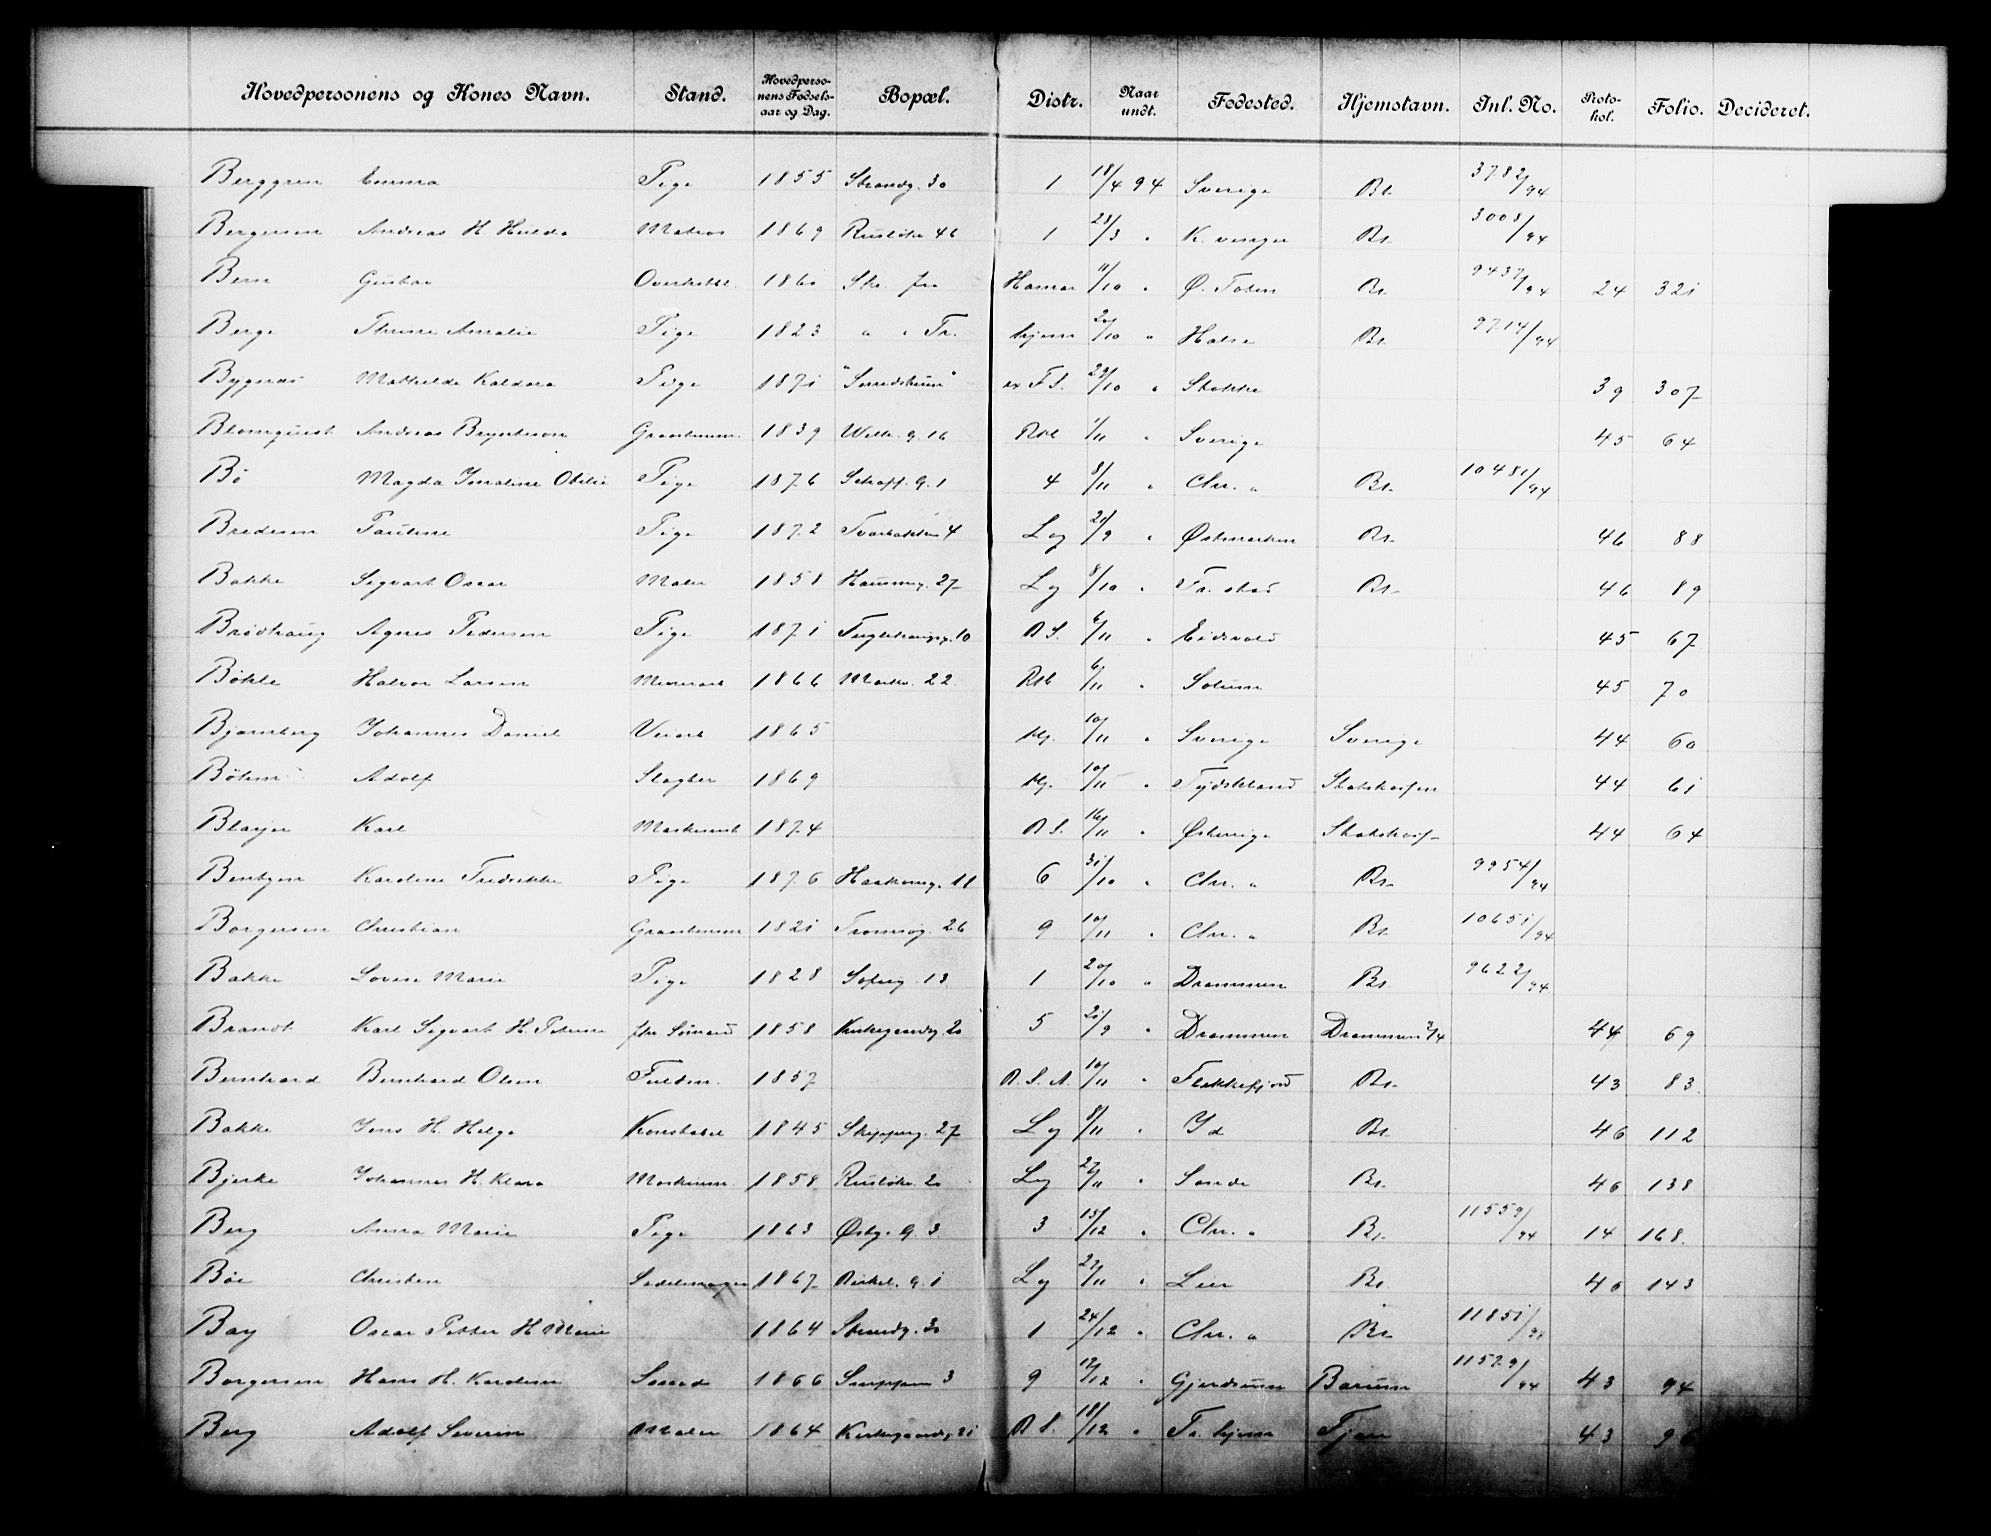 Hovedpersonens og Kones Navn. Stand. Hovedpersonens Fødselsaar og Dag. Bopæl. Distr. Naar undt. Fødested. Hjemstavn. Inl. No. Protokol. Folio. Decideret.
Berggren Emma Pige 1855 Strandg. 30 1 18/4 94 Sverige Bt. 3782/94
Bergersen Andreas H. Hulda Matros 1869 Rusløkv. 46 1 28/3 " K. vinger Bt. 3008/94
Bern Gustav 186 Hamar 11/10 " Ø. Toten Bt. 9437/94 24 321
Berge Thrine Amalie Pige 1823 " " Tr. hjem 20/10 " Halse Bt. 9714/94
Bygnæs Mathilde Kaldora Pige 1871 ex F.S. 22/10 " Stokke 39 307
Blomquist Andreas Brynteson Graastensm. 1839 Welh. g. 16 Rst 1/11 " Sverige 45 64
Bö Magda Otilie Pige 1876 Schaff. g. 1 4 8/11 " Chr. " Bt. 10481/94
Bredesen Pauline Pige 1872 Tværbakken 4 Lg 21/9 " Østmarken Bt. 46 88
Bakke Sigvart Oscar Maler 1858 Hausmg. 27 Lg 8/10 " Fr. stad Bt. 46 89
Brødhaug Agnes Pedersen Pige 1871 Fuglehaugg. 10 B S. 6/11 " Eidsvold 45 67
Bøkle Halvor Larsen Murerarb 1866 Markv. 22 Rst 6/11 " Solum 45 70
Bjørnberg Johannes Daniel Veiarb 1865 Mg. 10/11 " Sverige Sverige 44 60
Bøhm Adolf Slagter 1869 Mg. 10/11 " Tydskland 44 61
Karl 1874 B S. 16/11 " Østerrige 44 64
Bentzen Karoline Fredrikke Pige 1876 Haakonsg. 11 6 31/10 " Chr. " Bt. 9954/94
Borgersen Christian Graastensm 1821 Tromsøg. 26 9 10/11 " Chr. " Bt. 10651/94
Bakke Lovise Marie Pige 1828 Sofieg. 13 1 20/10 " Drammen Bt. 9622/94
Brandt Karl Sigvart H. Petrine fhv Sømand 1858 Kirkegaardsg. 20 5 21/9 " Drammen Drammen 3/4 44 69
Bernhard Bernhard Olsen Fuldm. 1857 B. S. A. 10/11 " Flekkefjord Bt. 43 83
Bakke Jens H. Helga Konstabel 1845 Skipperg. 27 Lg 8/11 " Id Bt. 46 112
Bjerke Johannes H. Klara Maskinm. 1858 Rusløkv. 20 Lg 27/11 " Sande Bt. 46 138
Berg Anna Marie Pige 1863 Østg. g. 3 3 15/12 " Chr. " Bt. 11559/94 14 168
Böe Christen Sadelmager 1867 Birkel. g. 1 Lg 27/11 " Lier Bt. 46 143
Bay Oscar Petter H. Marie 1864 Strandg. 30 1 24/12 " Chr. " Bt. 11851/94
Borgersen Hans H. Karoline 1866 Snippen 3 9 12/12 " Gjerdrum Bærum 11529/94 43 94
Berg Adolf Severin Maler 1864 Kirkegaardsg. 21 B S. 18/12 " Fr. hjem 43 96